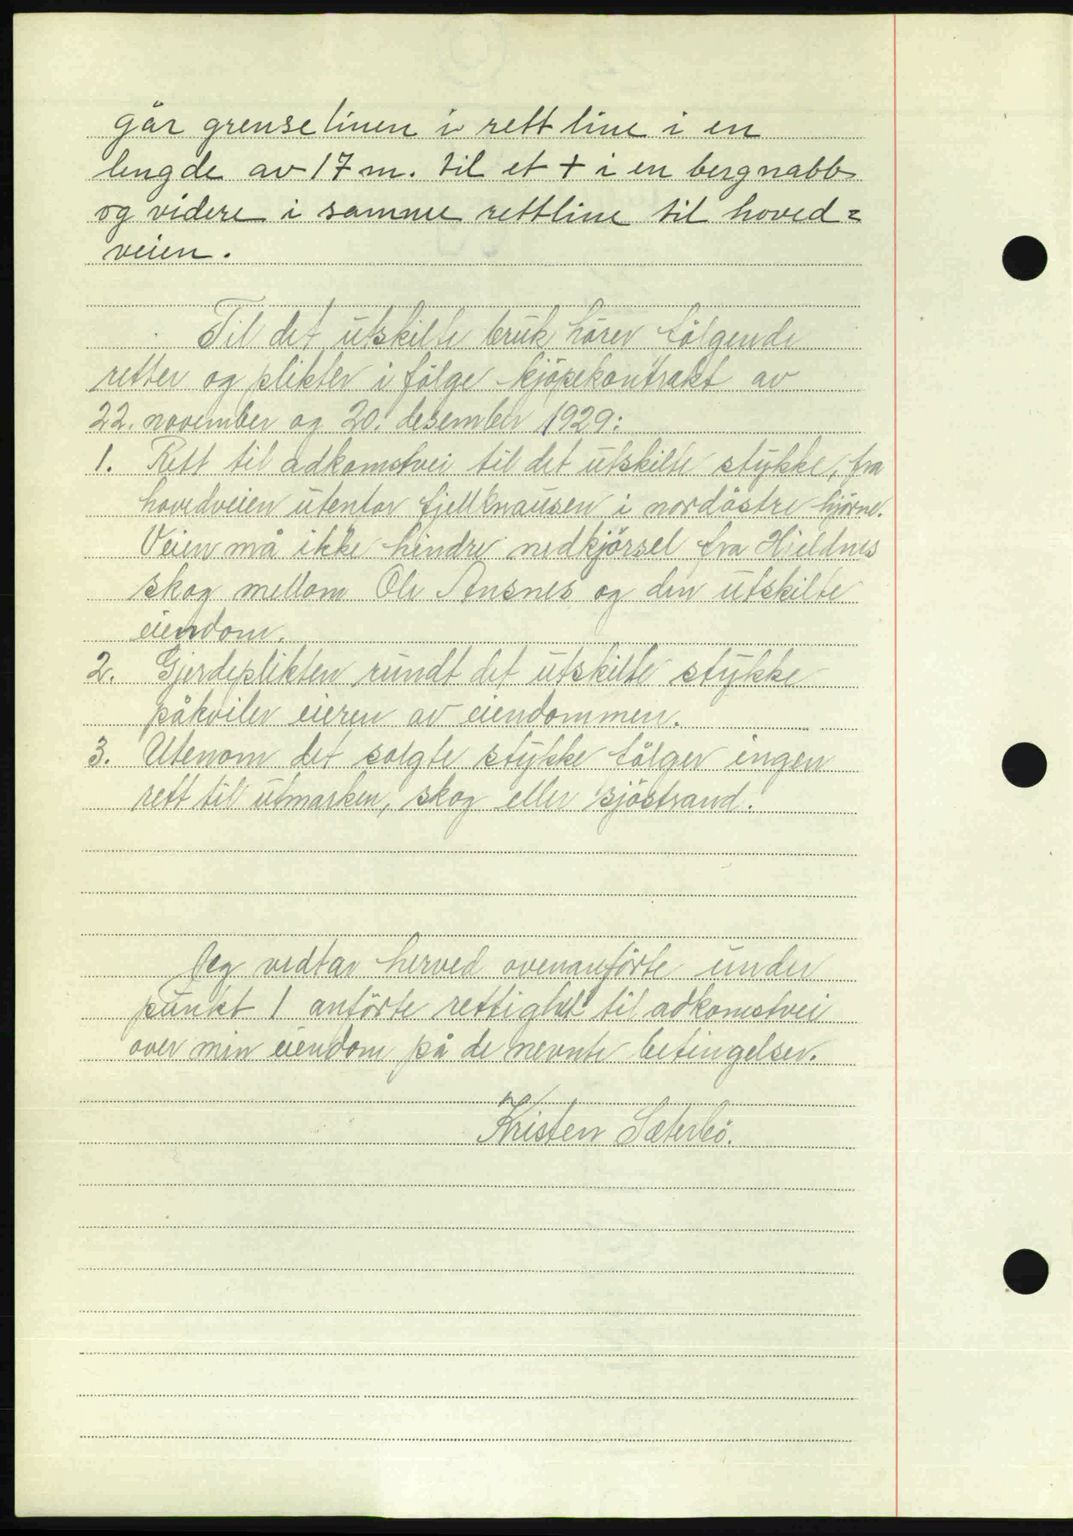 går grenselinen i rett line i en
lengde av 17 m. til et + i en bergnabb
og videre i samme rettline til hoved=
veien.
Til det utskilte bruk hörer fölgende
retter og plikter i fölge kjöpekontrakt av
22. november og 20. desember 1929:
1. Rett til adkomstvei til det utskilte stykke, fra
hovedveien utenfor fjellknausen i nordöstre hjörne.
Veien må ikke hindre nedkjörsel fra Hjeldnes
skog mellom Ole Ansnes og den utskilte
eiendom.
2. Gjerdeplikten rundt det utskilte stykke
påkviler eieren av eiendommen.
3. Utenom det solgte stykke fölger ingen
rett til utmarken, skog eller sjöstrand.
Jeg vedtar herved ovenanförte under
punkt 1 anförte rettighet til adkomstvei
over min eiendom på de nevnte betingelser.
Kristen Sæterbö.